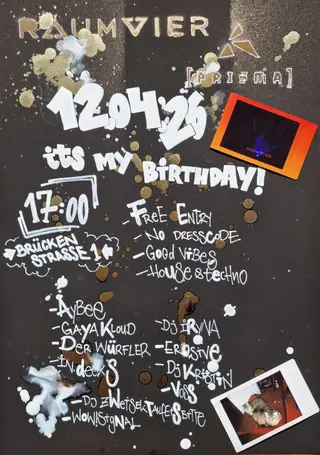 RAUMVIER
[PRISMA]
12.04.26
itS MY BiRTHDAY!
17:00
BRÜCKEN
STRASSE 1
- FreE ENtRY
- NO DRESSCODE
- GOOD ViBES
- HOUSE & techno
- AyBEE
- GAYA KLOUD
- DER WÜRFLER
- INdeckS
- DJ ZWetscktAuferSeite
- WOWISIGNAL
- DJ iRYNA
- EROSive
- DJ KRiStiN
- VOSS
RAUMVIER